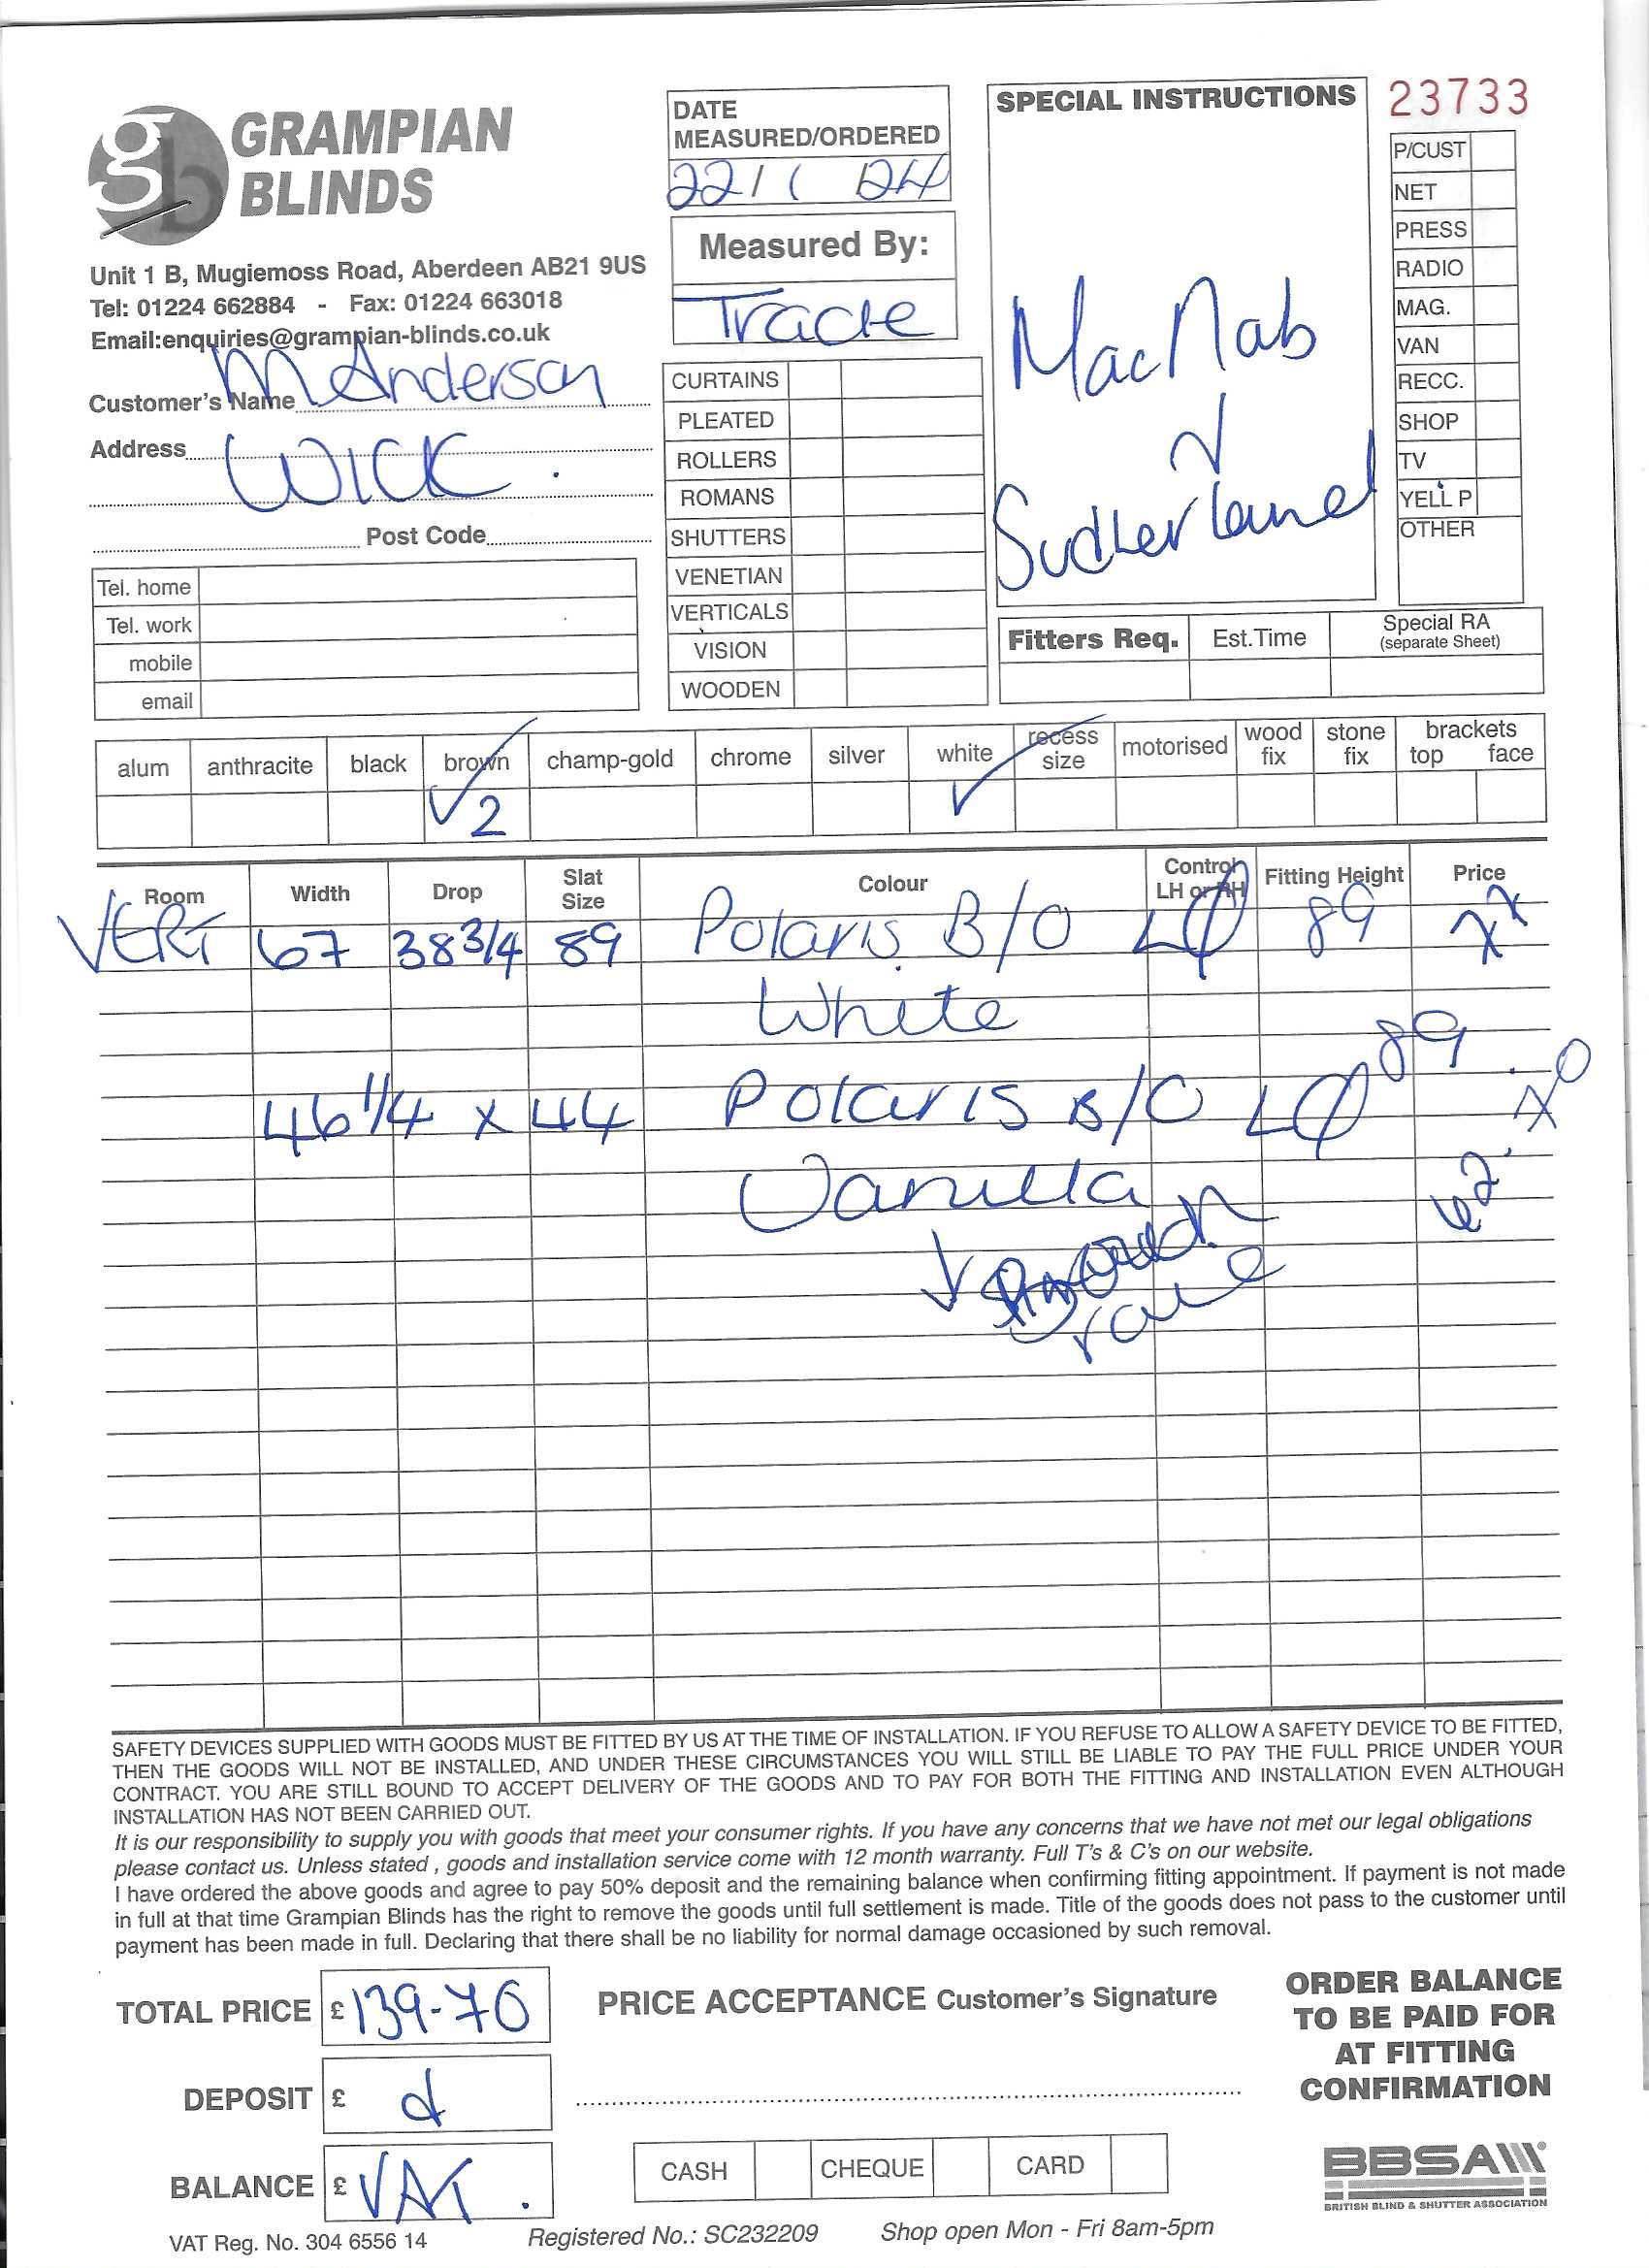 GRAMPIAN
BLINDS
Unit 1 B, Mugiemoss Road, Aberdeen AB21 9US
Tel: 01224 662884 - Fax: 01224 663018
Email:enquiries@grampian-blinds.co.uk
Customer's Name M Anderson
Address WICK.
Post Code
Tel. home
Tel. work
mobile
email
DATE
MEASURED/ORDERED
22/1/24
Measured By:
Trade
CURTAINS
PLEATED
ROLLERS
ROMANS
SHUTTERS
VENETIAN
VERTICALS
VISION
WOODEN
SPECIAL INSTRUCTIONS
MacNab
Sutherland
23733
P/CUST
NET
PRESS
RADIO
MAG.
VAN
RECC.
SHOP
TV
YELL P
OTHER
Fitters Req. Est.Time Special RA
(separate Sheet)
alum anthracite black brown champ-gold chrome silver white recess size motorised wood fix stone fix brackets top face
✓2 ✓
Room Width Drop Slat Size Colour Control LH or RH Fitting Height Price
VERT 67 38 3/4 89 Polaris B/O 89
White
46 1/4 x 44 Polaris B/O 89
Vanilla
SAFETY DEVICES SUPPLIED WITH GOODS MUST BE FITTED BY US AT THE TIME OF INSTALLATION. IF YOU REFUSE TO ALLOW A SAFETY DEVICE TO BE FITTED,
THEN THE GOODS WILL NOT BE INSTALLED, AND UNDER THESE CIRCUMSTANCES YOU WILL STILL BE LIABLE TO PAY THE FULL PRICE UNDER YOUR
CONTRACT. YOU ARE STILL BOUND TO ACCEPT DELIVERY OF THE GOODS AND TO PAY FOR BOTH THE FITTING AND INSTALLATION EVEN ALTHOUGH
INSTALLATION HAS NOT BEEN CARRIED OUT.
It is our responsibility to supply you with goods that meet your consumer rights. If you have any concerns that we have not met our legal obligations
please contact us. Unless stated , goods and installation service come with 12 month warranty. Full T's & C's on our website.
I have ordered the above goods and agree to pay 50% deposit and the remaining balance when confirming fitting appointment. If payment is not made
in full at that time Grampian Blinds has the right to remove the goods until full settlement is made. Title of the goods does not pass to the customer until
payment has been made in full. Declaring that there shall be no liability for normal damage occasioned by such removal.
TOTAL PRICE £ 139-70
DEPOSIT £
BALANCE £ VAT.
PRICE ACCEPTANCE Customer's Signature
CASH CHEQUE CARD
ORDER BALANCE
TO BE PAID FOR
AT FITTING
CONFIRMATION
BBSA
BRITISH BLIND & SHUTTER ASSOCIATION
VAT Reg. No. 304 6556 14 Registered No.: SC232209 Shop open Mon - Fri 8am-5pm